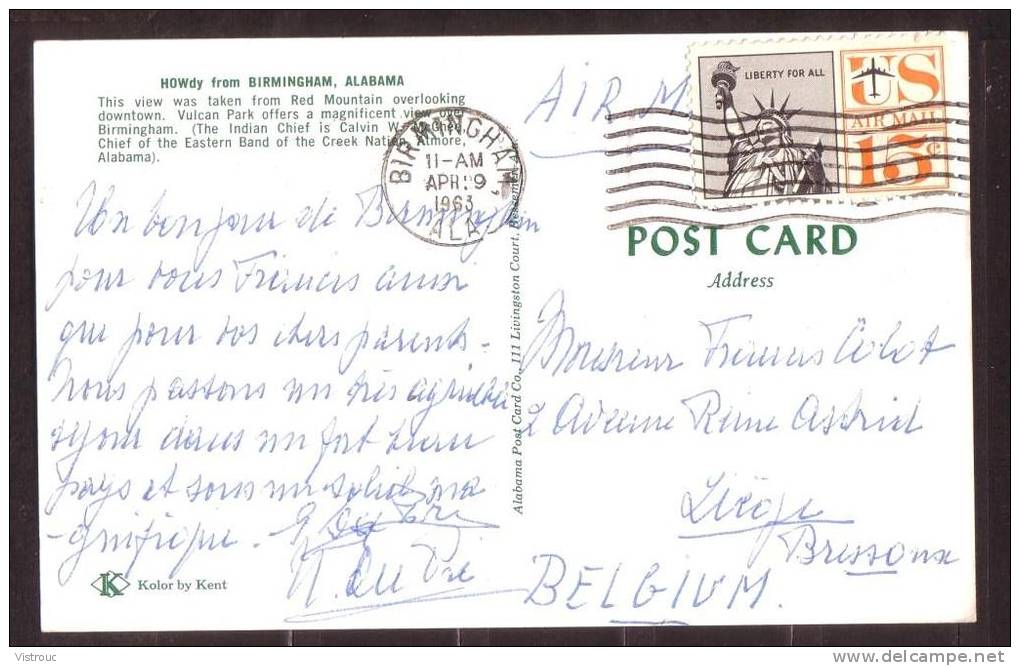 HOWdy from BIRMINGHAM, ALABAMA
This view was taken from Red Mountain overlooking
downtown. Vulcan Park offers a magnificent view over
Birmingham. (The Indian Chief is Calvin W. McGhee,
Chief of the Eastern Band of the Creek Nation, Atmore,
Alabama).
Un bonjour de Birmingham
pour vous Francis aussi
que pour vos chers parents.
Nous passons un très agréable
séjour dans un fort beau
pays et sous un soleil ma
-gnifique.
Kolor by Kent
Alabama Post Card Co., 111 Livingston Court, Bessemer,
BIRMINGHAM,
11-AM
APR 29
1963
ALA
AIR M
LIBERTY FOR ALL
US
AIR MAIL
15c
POST CARD
Address
Monsieur Francis
2 Avenue Reine Astrid
Liège
Bressoux
BELGIUM.
Vistrouc
delcampe.net